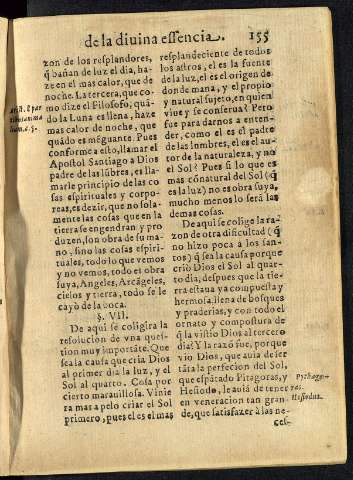 de la diuina essencia.
155
zon de los resplandores,
q̃ bañan de luz el dia, ha-
ze en el mas calor, que de
noche. La tercera, que co-
mo dize el Filosofo, quá-
do la Luna es llena, haze
mas calor de noche, que
quãdo es méguante. Pues
conforme a esto, llamar el
Apostol Santiago a Dios
padre de las lũbres, es lla-
marle principio de las co
sas espirituales y corpo-
reas, es dezir, que no sola-
mente las cosas que en la
tierra se engendran y pro
duzen, son obra de su ma-
no, sino las cosas espiri-
tuales, todo lo que vemos
y no vemos, todo es obra
suya, Angeles, Arcãgeles,
cielos y tierra, todo se le
cayò de la boca.
§. VII.
De aqui se coligira la
resolucion de vna ques-
tion muy importãte. Que
sea la causa que criò Dios
al primer dia la luz, y el
Sol al quarto. Cosa por
cierto marauillosa. Vinie
ra mas a pelo criar el Sol
primero, pues el es el mas
Arist. 4 par
tibus anima
lium. c. 5.
resplandeciente de todos
los astros, el es la fuente
de la luz, el es el origen de
donde mana, y el propio
y natural sujeto, en quien
viue y se conserua? Pero
fue para darnos a enten-
der, como el es el padre
de las lombres, el es el au-
tor de la naturaleza, y no
el Sol? Pues si lo que es
mas cónatural del Sol (q̃
es la luz) no es obra suya,
mucho menos lo será las
demas cosas.
De aqui se colige la ra-
zon de otra dificultad (q̃
no hizo poca a los san-
tos) q̃ sea la causa porque
criò Dios el Sol al quar-
to dia, despues que la tie-
rra estaua ya compuesta y
hermosa, llena de bosques
y praderias, y con todo el
ornato y compostura de
q̃ la vistio Dios al tercero
dia? Y la razõ fue, porque
vio Dios, que auia de ser
tãta la perfecion del Sol,
que espãtado Pitagoras, y
Hesiodo, le auia de tener
en veneracion tan gran
de, que satisfazer à las ne-
Pythago-
ras.
Hesiodus.
ces-